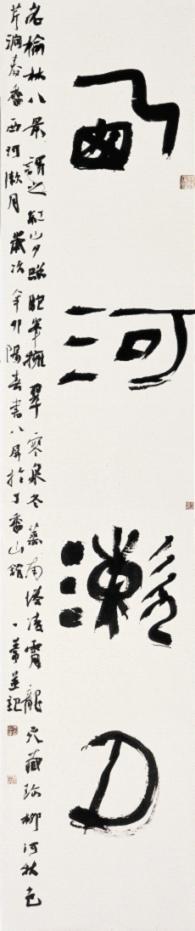 西河漱月
名榆林八景謂之紅山夕照駝峯擁翠寒泉冬蒸南塔凌霄龍穴藏珍柳河秋色
芹澗春香西河漱月 歲次辛卯陽春書八屏於丁香山館 一葦並記